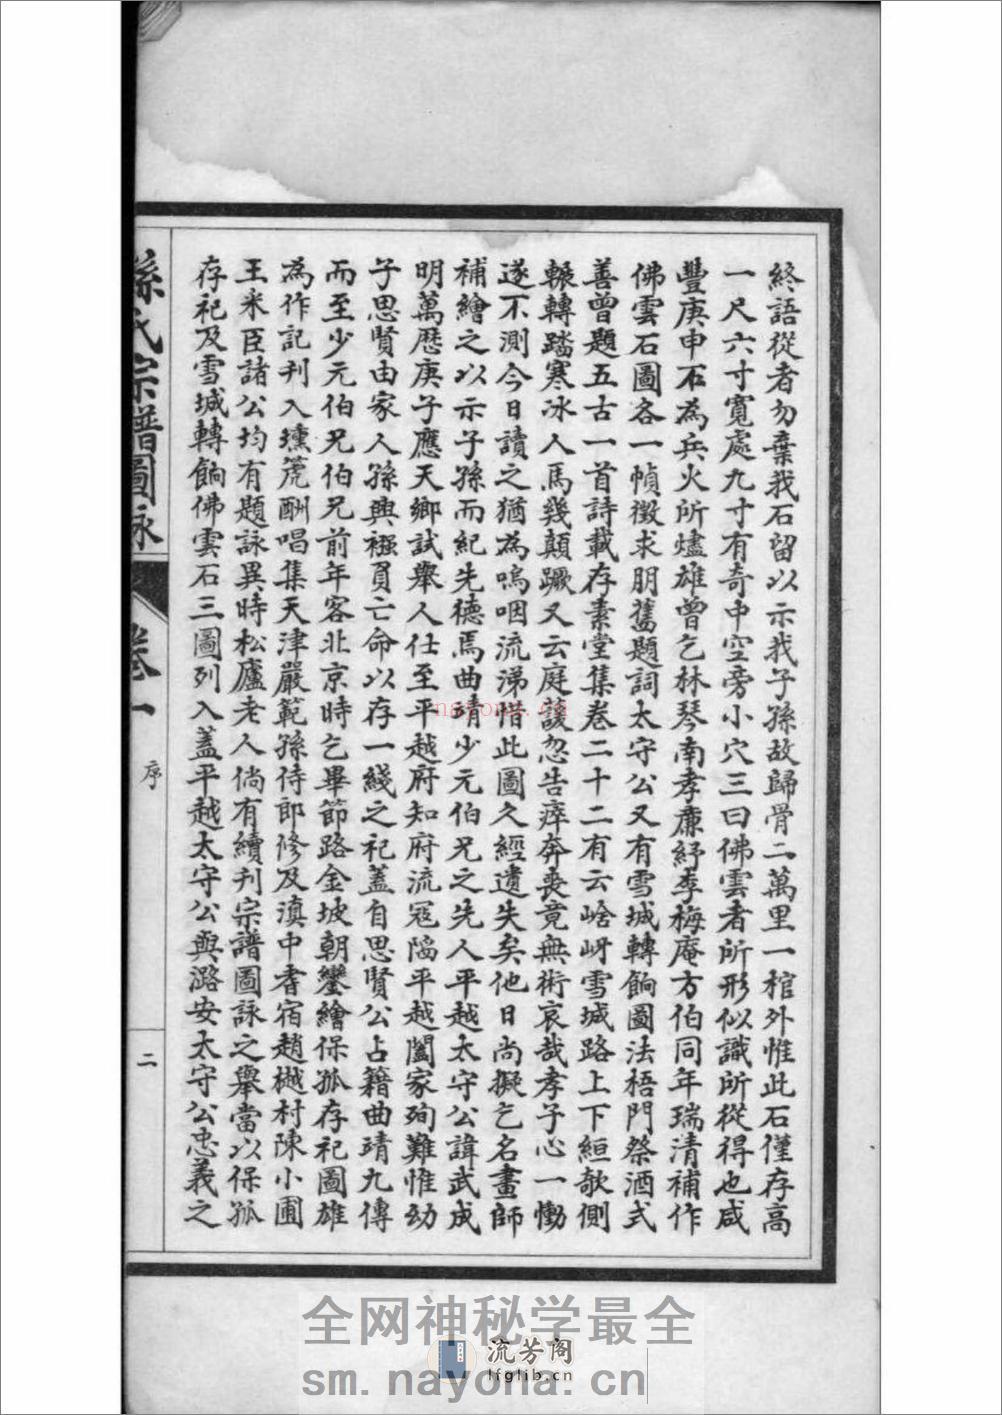 終語從者勿棄我石留以示我子孫故歸骨二萬里一棺外惟此石僅存高
一尺六寸寬處九寸有奇中空旁小穴三曰佛雲者所形似識所從得也咸
豐庚申石為兵火所燼雄曾乞林琴南孝廉紓李梅庵方伯同年瑞清補作
佛雲石圖各一幀徵求朋舊題詞太守公又有雪城轉餉圖法梧門祭酒式
善曾題五古一首詩載存素堂集卷二十二有云崄岈雪城路上下絙欹側
輾轉踏寒冰人馬幾顛蹶又云庭諼忽告瘁奔喪竟無術哀哉孝子心一慟
遂不測今日讀之猶為嗚咽流涕惜此圖久經遺失矣他日尚擬乞名畫師
補繪之以示子孫而紀先德焉曲靖少元伯兄之先人平越太守公諱武成
明萬歷庚子應天鄉試舉人仕至平越府知府流寇陷平越闔家殉難惟幼
子思賢由家人孫興襁負亡命以存一綫之祀蓋自思賢公占籍曲靖九傳
而至少元伯兄伯兄前年客北京時乞畢節路金坡朝鑾繪保孤存祀圖雄
為作記刊入壎篪酬唱集天津嚴範孫侍郎修及滇中耆宿趙樾村陳小圃
王采臣諸公均有題詠異時松廬老人倘有續刊宗譜圖詠之舉當以保孤
存祀及雪城轉餉佛雲石三圖列入蓋平越太守公與潞安太守公忠義之
孫氏宗譜圖詠 卷一 序 二
nayona.cn
全网神秘学最全
流芳阁
lfglib.cn
sm.nayona.cn